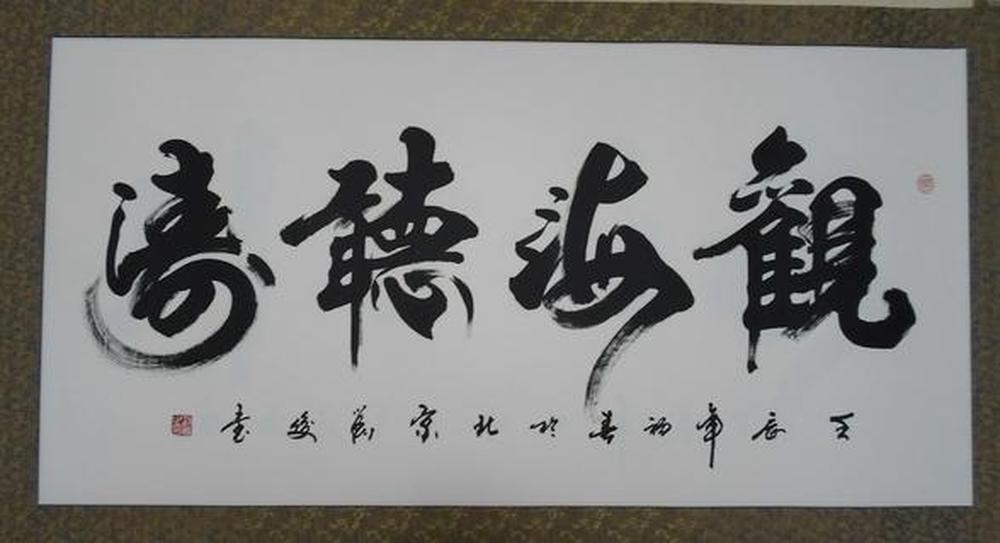 觀海聽濤
壬辰年初春於北京